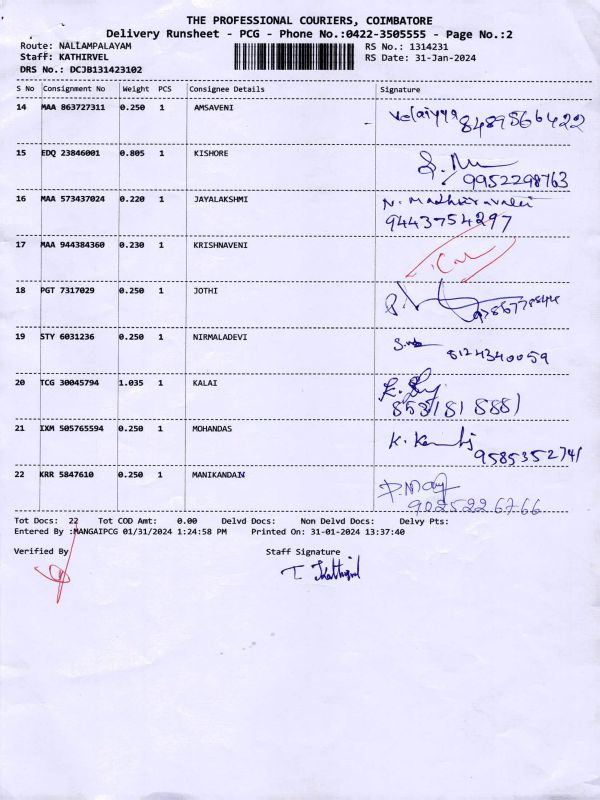 THE PROFESSIONAL COURIERS, COIMBATORE
Delivery Runsheet - PCG - Phone No.:0422-3505555 - Page No.:2
Route: NALLAMPALAYAM RS No.: 1314231
Staff: KATHIRVEL RS Date: 31-Jan-2024
DRS No.: DCJB131423102
S No Consignment No Weight PCS Consignee Details Signature
14 MAA 863727311 0.250 1 AMSAVENI Velaiyya 8489566422
15 EDQ 23846001 0.805 1 KISHORE
9952298763
16 MAA 573437024 0.220 1 JAYALAKSHMI N. Madhuravalli
9443754297
17 MAA 944384360 0.230 1 KRISHNAVENI
18 PGT 7317029 0.250 1 JOTHI
19 STY 6031236 0.250 1 NIRMALADEVI
8124340059
20 TCG 30045794 1.035 1 KALAI
8531818881
21 IXM 505765594 0.250 1 MOHANDAS
9585352741
22 KRR 5847610 0.250 1 MANIKANDAN
9025226766
Tot Docs: 22 Tot COD Amt: 0.00 Delvd Docs: Non Delvd Docs: Delvy Pts:
Entered By :MANGAIPCG 01/31/2024 1:24:58 PM Printed On: 31-01-2024 13:37:40
Verified By Staff Signature